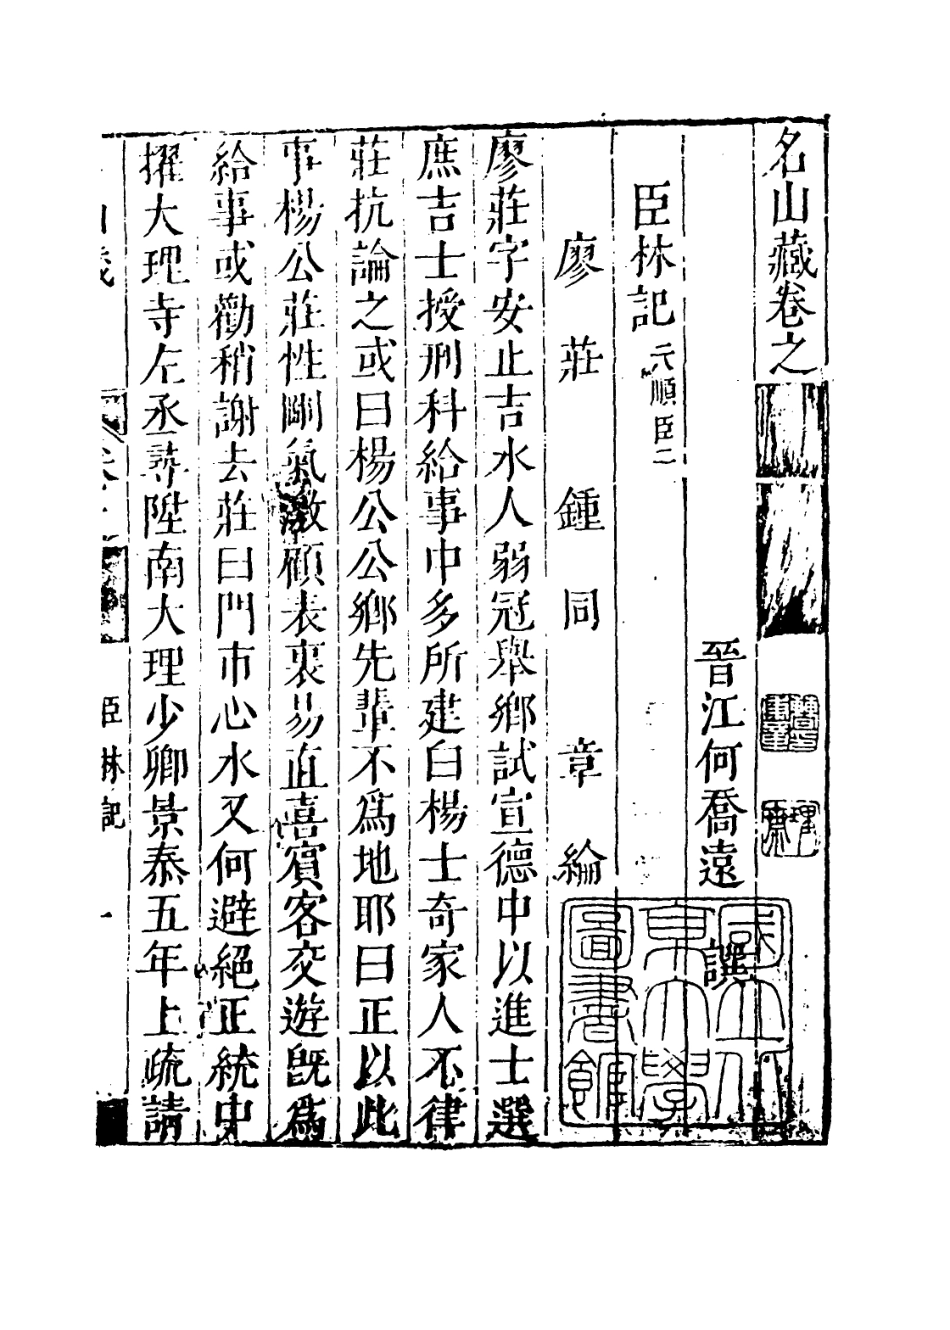 名山藏卷之
晉江何喬遠譔
臣林記 天順臣二
廖莊 鍾同 章綸
廖莊字安止吉水人弱冠舉鄉試宣德中以進士選
庶吉士授刑科給事中多所建白楊士奇家人不律
莊抗論之或曰楊公公鄉先輩不爲地耶曰正以此
事楊公莊性剛氣激顧表裏易直喜賓客交遊旣爲
給事或勸稍謝去莊曰門市心水又何避絕正統中
擢大理寺左丞尋陞南大理少卿景泰五年上疏請
臣林記 一